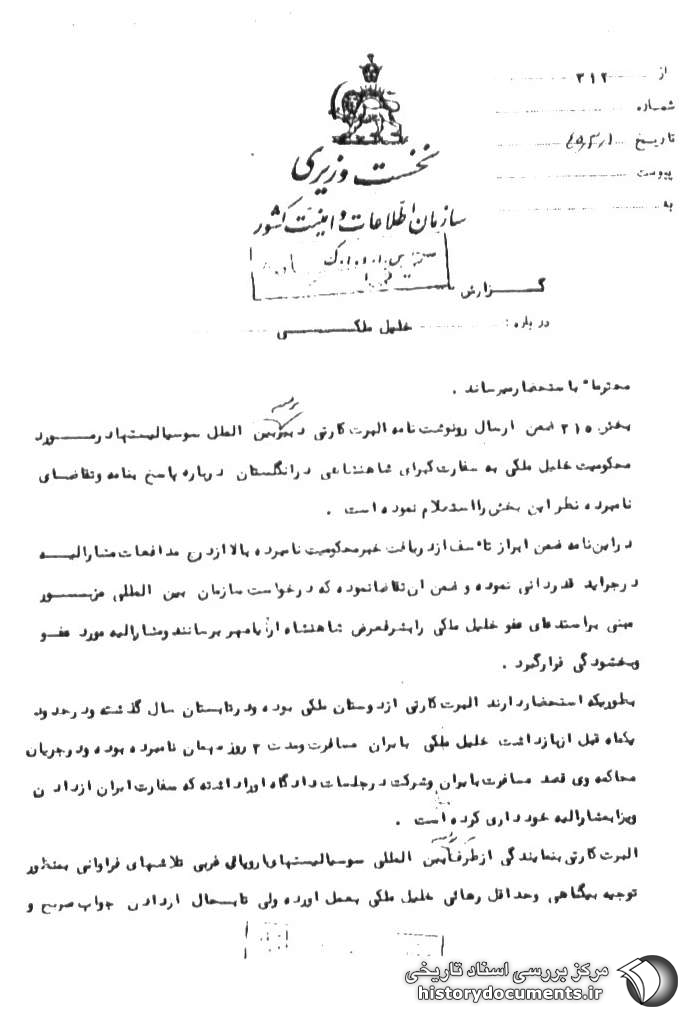 از ۳۱۲
شماره
تاریخ
پیوست
به
نخست وزیری
سازمان اطلاعات و امنیت کشور
گزارش
درباره: خلیل ملکی
محترما" باستحضار میرساند .
بخش ۲۱۵ ضمن ارسال رونوشت نامه البرت کارتی دبیر بین الملل سوسیالیستها در مورد
محکومیت خلیل ملکی به سفارت کبرای شاهنشاهی در انگلستان درباره پاسخ بنامه وتقاضای
نامبرده نظر این بخش را استعلام نموده است .
در این نامه ضمن ابراز تأسف از دریافت خبر محکومیت نامبرده بالا از درج مدافعات مشارالیه
در جراید قدردانی نموده و ضمن آن تقاضا نموده که درخواست سازمان بین المللی مزبور
مبنی بر استدعای عفو خلیل ملکی را بشرفعرض شاهنشاه آریامهر برسانند ومشارالیه مورد عفو و
وبخشودگی قرار گیرد .
بطوریکه استحضار دارند البرت کارتی از دوستان ملکی بوده ودر تابستان سال گذشته ودر حدود
یکماه قبل از بازداشت خلیل ملکی بایران مسافرت ومدت ۲ روز مهمان نامبرده بوده ودر جریان
محاکمه وی قصد مسافرت بایران وشرکت در جلسات دادگاه اورا داشته که سفارت ایران از دادن
ویزا بمشارالیه خودداری کرده است .
البرت کارتی بنمایندگی از طرف بین المللی سوسیالیستهای اروپائی غربی تلاشهای فراوانی بمنظور
توجیه بیگناهی وحداقل رهائی خلیل ملکی بعمل آورده ولی تابحال از دادن جواب صریح و
مرکز بررسی اسناد تاریخی
historydocuments.ir